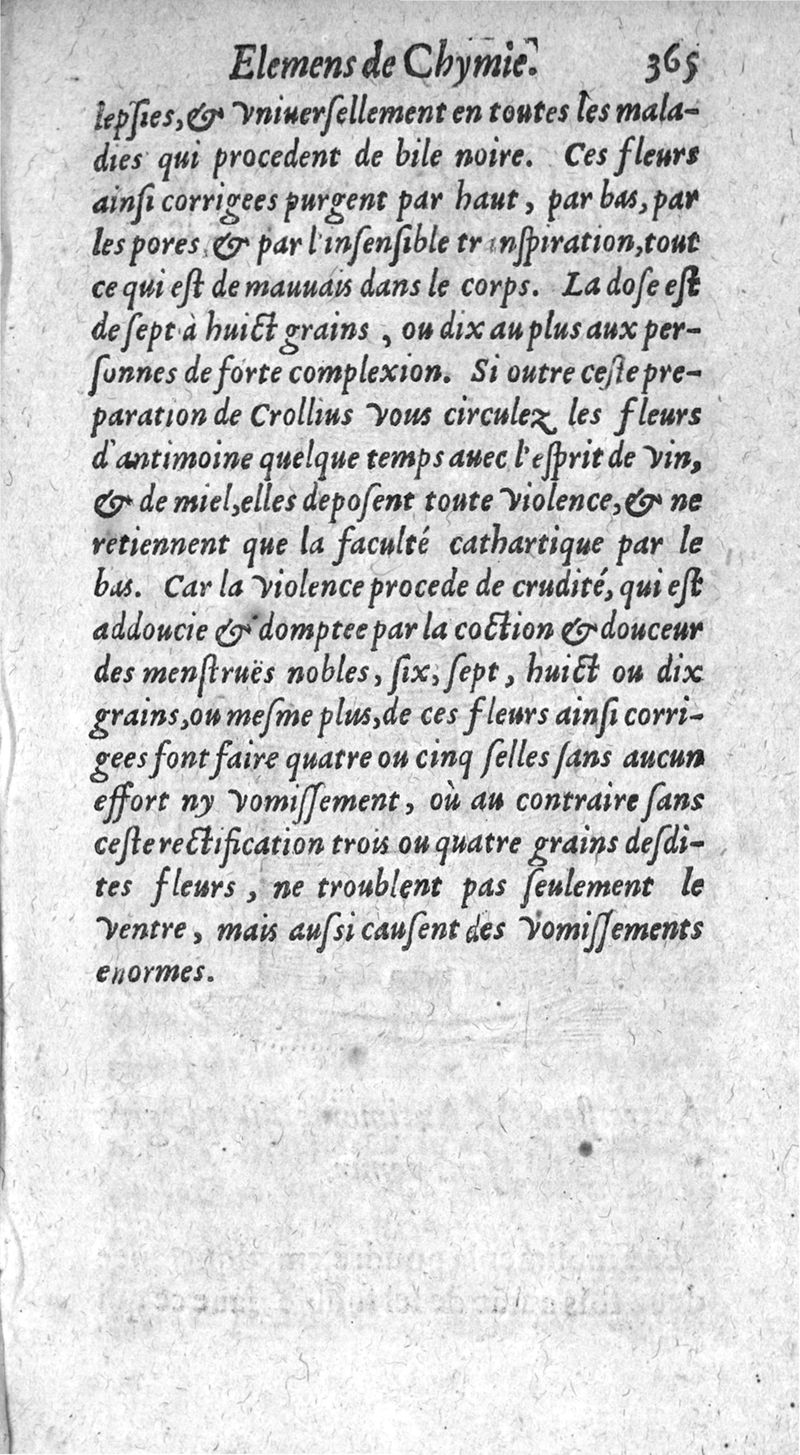 Elemens de Chymie. 365
lepſies, & vniuerſellement en toutes les mala-
dies qui procedent de bile noire. Ces fleurs
ainſi corrigees purgent par haut, par bas, par
les pores, & par l'inſenſible tranſpiration, tout
ce qui eſt de mauuais dans le corps. La doſe eſt
de ſept à huict grains, ou dix au plus aux per-
ſonnes de forte complexion. Si outre ceſte pre-
paration de Crollius vous circulez les fleurs
d'antimoine quelque temps auec l'eſprit de vin,
& de miel, elles depoſent toute violence, & ne
retiennent que la faculté cathartique par le
bas. Car la violence procede de crudité, qui eſt
addoucie & domptee par la coction & douceur
des menſtruës nobles, ſix, ſept, huict ou dix
grains, ou meſme plus, de ces fleurs ainſi corri-
gees font faire quatre ou cinq ſelles ſans aucun
effort ny vomiſſement, où au contraire ſans
ceſte rectification trois ou quatre grains deſdi-
tes fleurs, ne troublent pas ſeulement le
ventre, mais auſsi cauſent des vomiſſements
enormes.